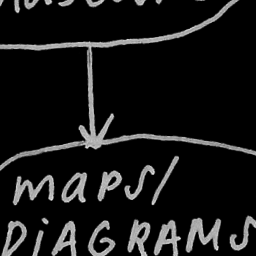 maps/
DiAGRAMS